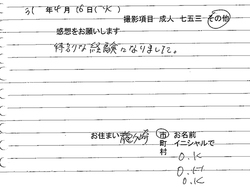 31 年 4月 16日 (火)
撮影項目 成人 七五三 その他
感想をお願いします
特別な経験になりました。
お住まい 龍ヶ崎 市町村 お名前 イニシャルで
O.K
O.H
O.K